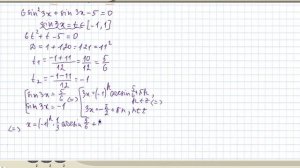 6 sin² 3x + sin 3x - 5 = 0
sin 3x = t, t ∈ [-1, 1]
6t² + t - 5 = 0
D = 1 + 120 = 121 = 11²
t₁ = (-1 + 11)/12 = 10/12 = 5/6
t₂ = (-1 - 11)/12 = -1
[ sin 3x = 5/6 <=> [ 3x = (-1)ᵏ arcsin 5/6 + πk,
sin 3x = -1 3x = -π/2 + 2πk, k ∈ Z <=>
<=> x = (-1)ᵏ · 1/3 arcsin 5/6 +